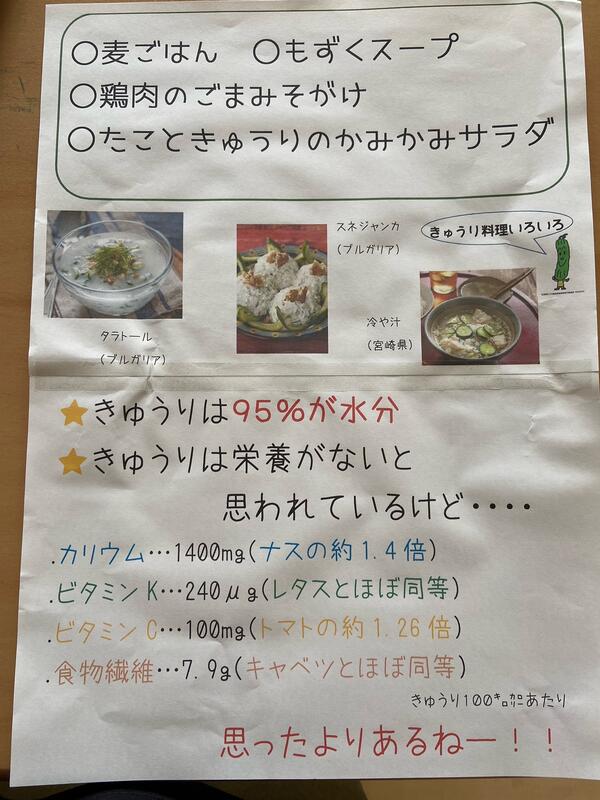 ○麦ごはん ○もずくスープ
○鶏肉のごまみそがけ
○たこときゅうりのかみかみサラダ
スネジャンカ
(ブルガリア)
きゅうり料理いろいろ
タラトール
(ブルガリア)
冷や汁
(宮崎県)
きゅうりは95%が水分
きゅうりは栄養がないと
思われているけど・・・・
.カリウム…1400mg(ナスの約1.4倍)
.ビタミンK…240μg(レタスとほぼ同等)
.ビタミンC…100mg(トマトの約1.26倍)
.食物繊維…7.9g(キャベツとほぼ同等)
きゅうり100㌔㌍あたり
思ったよりあるねー！！